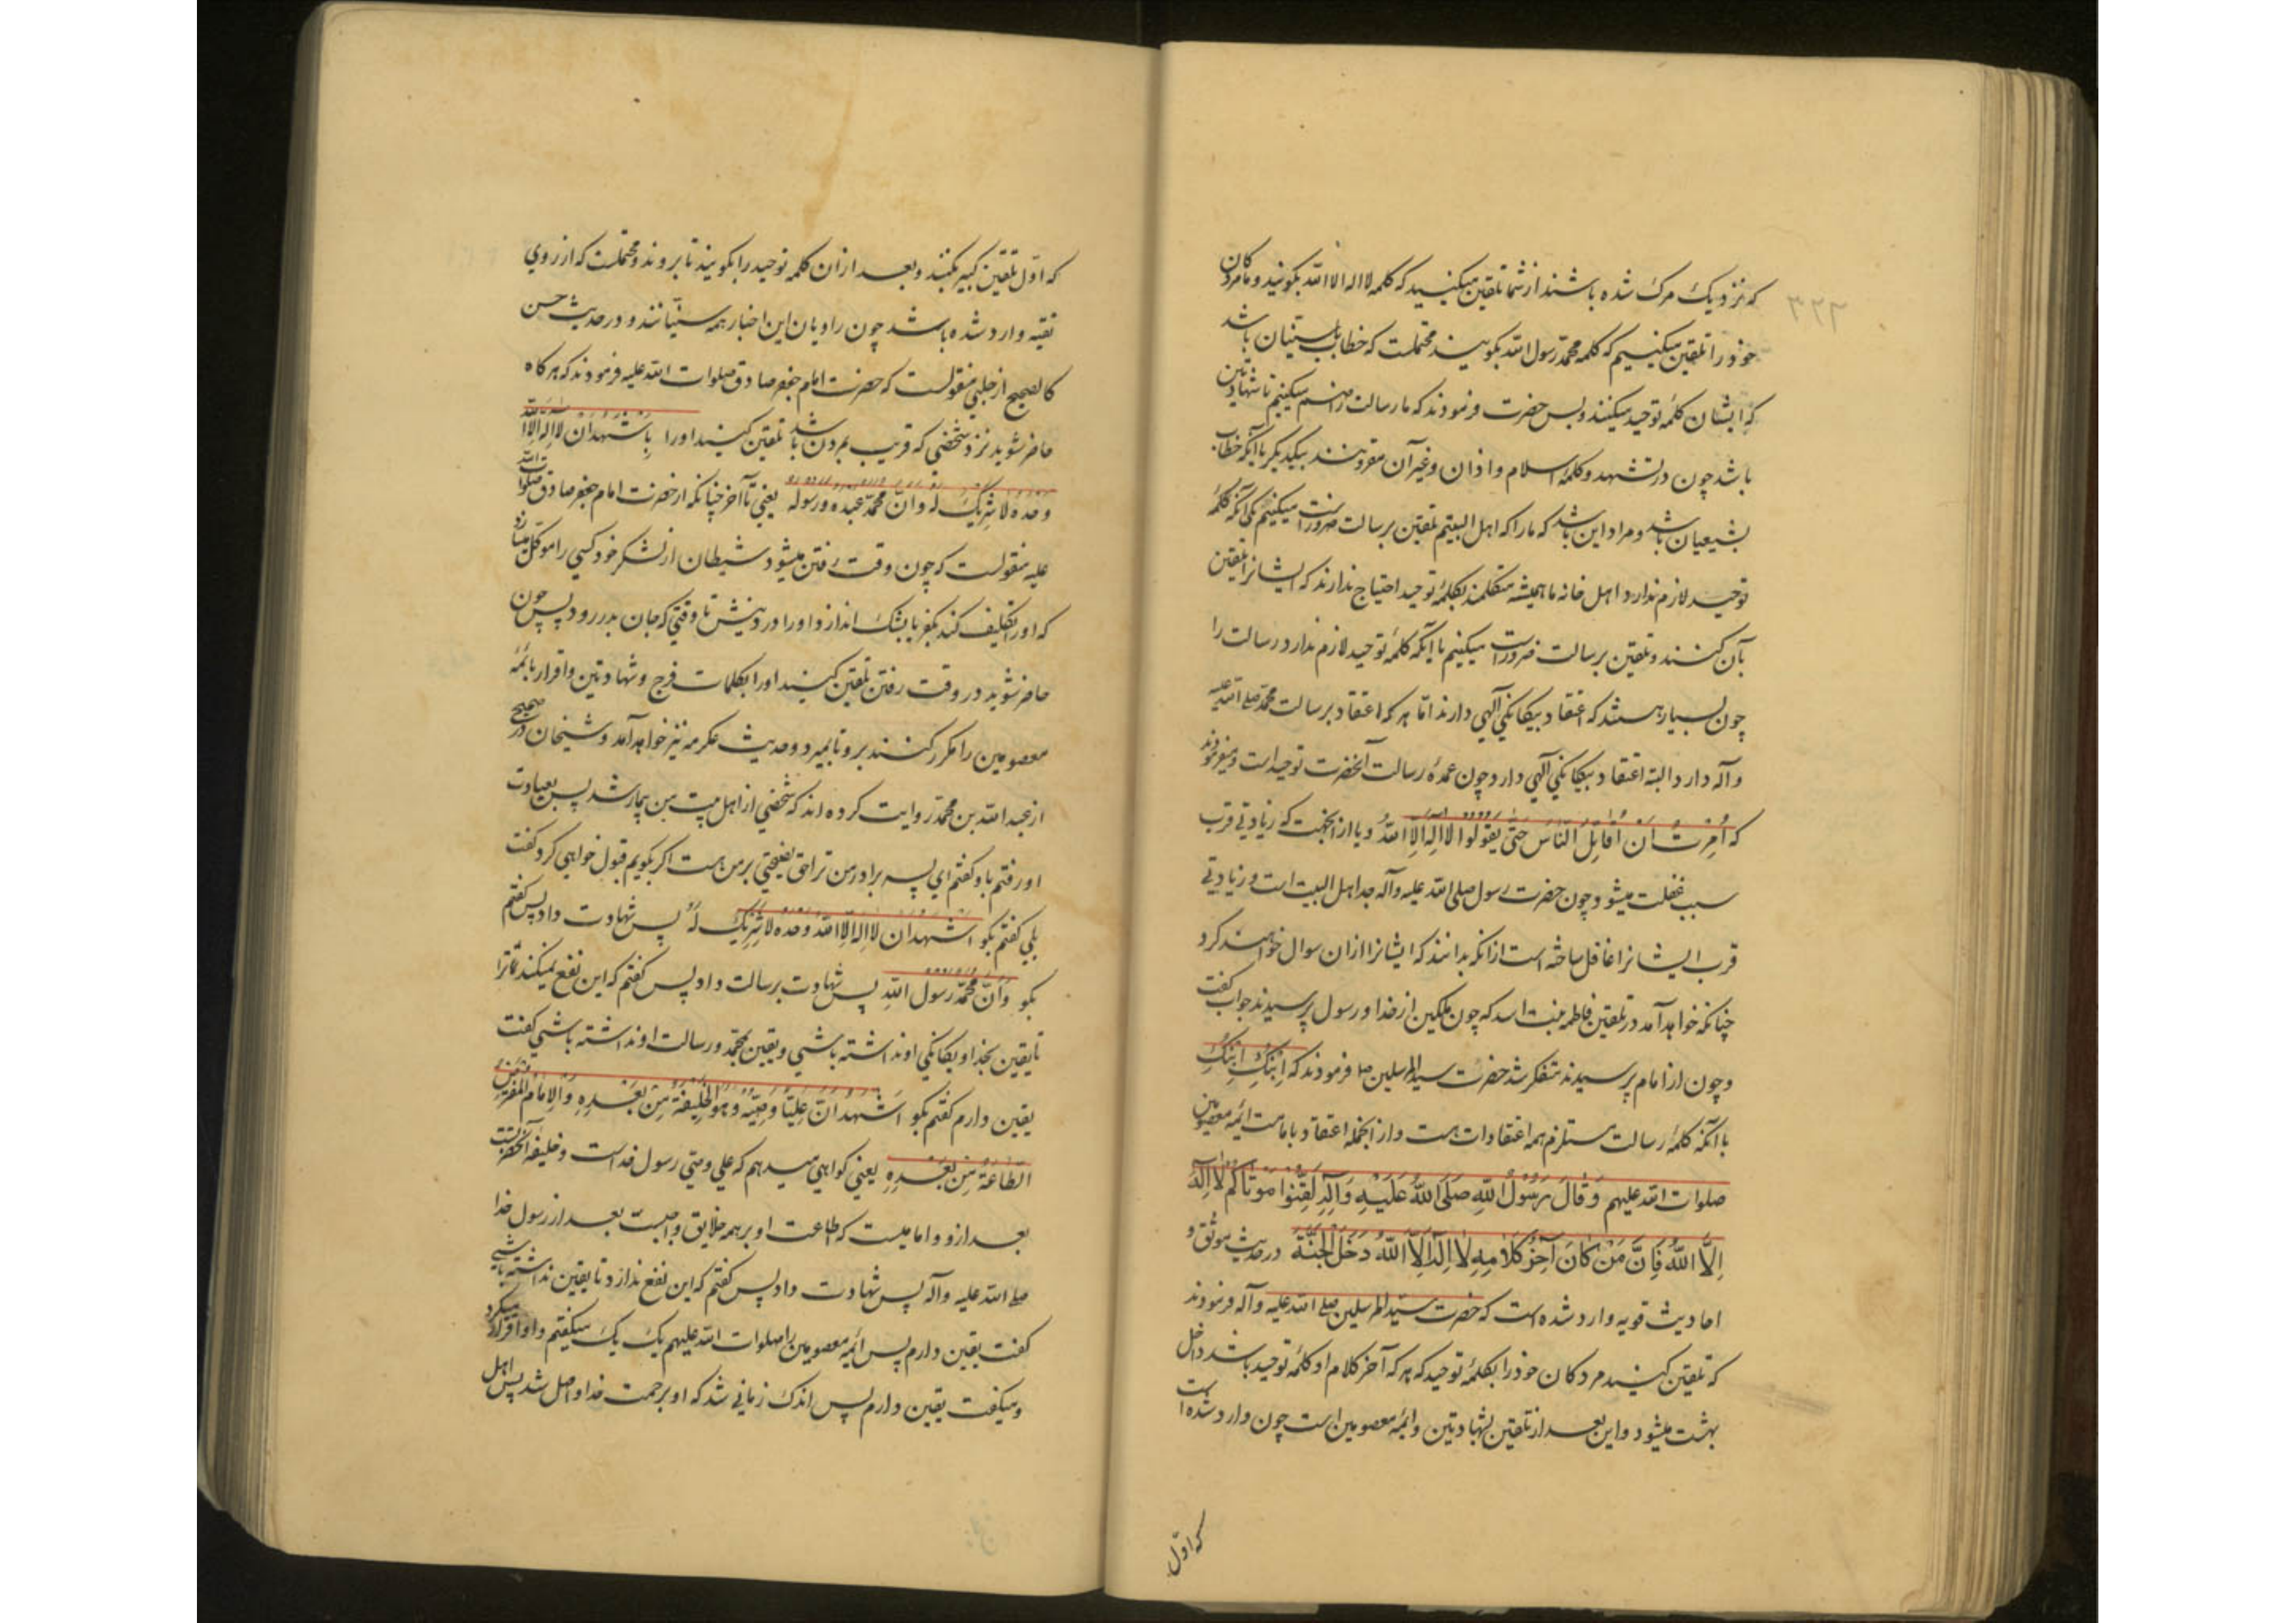 که نزدیک مرک شده باشند از شما تلقین میکنید که کلمه لا اله الا الله بکویید و ما مردکان
خود را تلقین میکنیم که کلمه محمد رسول الله بکویند محتملست که خطاب بسنیان باشد
که ایشان کلمه توحید میکنند و بس حضرت فرمودند که ما رسالت را ضم میکنیم تا شهادتین
باشد چون در تشهد و کلمه اسلام و اذان و غیر آن مقرونند بیکدیکر یا آنکه خطاب
بشیعیان باشد و مراد این باشد که ما را که اهل البیتیم تلقین برسالت ضرورست میکنیم بی آنکه کلمه
توحید لازم ندارد اهل خانه ما همیشه متکلمند بکلمه توحید احتیاج ندارند که ایشانرا تلقین
بآن کنند و تلقین برسالت ضرورست میکنیم با آنکه کلمه توحید لازم ندارد رسالت را
چون بسیار هستند که اعتقاد بیکانکی آلهی دارند اما هر که اعتقاد برسالت محمد صلی الله علیه
و آله دارد البته اعتقاد بیکانکی آلهی دارد چون عمده رسالت آنحضرت توحید است و میفرمودند
که اُمِرْتُ اَنْ اُقَاتِلَ النَّاسَ حَتّی یَقُولُوا لَا اِلهَ اِلَّا اللهُ و یا از انجهت که زیادتی قرب
سبب غفلت میشود چون حضرت رسول صلی الله علیه و آله جد اهل البیت است و زیادتی
قرب ایشانرا غافل ساخته است از انکه بدانند که ایشانرا ازان سوال خواهند کرد
چنانکه خواهد آمد در تلقین فاطمه بنت اسد که چون ملکین از خدا و رسول پرسیدند جواب کفت
و چون از امام پرسیدند متفکر شد حضرت سید المرسلین ص فرمودند که اِبْنُکِ اِبْنُکِ
با آنکه کلمه رسالت مستلزم همه اعتقادات هست و از انجمله اعتقاد بامامت ائمه معصومین
صلوات الله علیهم وَقَالَ رَسُولُ اللهِ صَلَّی اللهُ عَلَیْهِ وَآلِهِ لَقِّنُوا مَوْتَاکُمْ لَا اِلهَ
اِلَّا اللهُ فَاِنَّ مَنْ کَانَ آخِرُ کَلَامِهِ لَا اِلهَ اِلَّا اللهُ دَخَلَ الْجَنَّةَ در حدیث موثق و
احادیث قویه وارد شده است که حضرت سید المرسلین صلی الله علیه و آله فرمودند
که تلقین کنید مردکان خود را بکلمه توحید که هر که آخر کلام او کلمه توحید باشد داخل
بهشت میشود و این بعد از تلقین بشهادتین و ایمه معصومین است چون وارد شده است
که اول
که اوّل تلقین کبیر بکنند و بعد ازان کلمه توحید را بکویند تا بروند و محتملست که از روی
تقیه وارد شده باشد چون راویان این اخبار همه سنیانند و در حدیث حسن
کالصحیح از حلبی منقولست که حضرت امام جعفر صادق صلوات الله علیه فرمودند که هر کاه
حاضر شوید نزد شخصی که قریب بمردن باشد تلقین کنید او را بِاَشْهَدُ اَنْ لَا اِلهَ اِلَّا اللهُ
وَحْدَهُ لَا شَرِیکَ لَهُ وَاَنَّ مُحَمَّدًا عَبْدُهُ وَرَسُولُهُ یعنی تا آخر چنانکه از حضرت امام جعفر صادق صلوات الله
علیه منقولست که چون وقت رفتن میشود شیطان از لشکر خود کسی را موکل میسازد
که او را تکلیف کند بکفر یا بشک اندازد او را در دینش تا وقتی که جان بدر رود پس چون
حاضر شوید در وقت رفتن تلقین کنید او را بکلمات فرج و شهادتین و اقرار بائمه
معصومین را مکرر کنند برو تا بمیرد و حدیث عکرمه نیز خواهد آمد و شیخان در صحیح
از عبد الله بن محمد روایت کرده اند که شخصی از اهل بیت من بیمار شد پس بعیادت
او رفتم باو کفتم ای پسر برادر من ترا حق نصیحتی بر من هست اکر بکویم قبول خواهی کرد کفت
بلی کفتم بکو اَشْهَدُ اَنْ لَا اِلهَ اِلَّا اللهُ وَحْدَهُ لَا شَرِیکَ لَهُ پس شهادت داد پس کفتم
بکو وَاَنَّ مُحَمَّدًا رَسُولُ اللهِ پس شهادت برسالت داد پس کفتم که این نفع نمیکند ترا
تا یقین بخدا و یکانکی او نداشته باشی و یقین بمحمد و رسالت او نداشته باشی کفت
یقین دارم کفتم بکو اَشْهَدُ اَنَّ عَلِیًّا وَصِیُّهُ وَهُوَ الْخَلِیفَةُ مِنْ بَعْدِهِ وَالْاِمَامُ الْمُفْتَرَضُ
الطَّاعَةُ مِنْ بَعْدِهِ یعنی کواهی میدهم که علی وصی رسول خداست و خلیفه آنحضرتست
بعد ازو و امامیست که طاعت او بر همه خلایق واجبست بعد از رسول خدا
صلی الله علیه و آله پس شهادت داد پس کفتم که این نفع ندارد تا یقین نداشته باشی
کفت یقین دارم پس ائمه معصومین را صلوات الله علیهم یک یک میکفتم و او اقرار میکرد
و میکفت یقین دارم پس اندک زمانی شد که او برحمت خدا واصل شد پس اهل